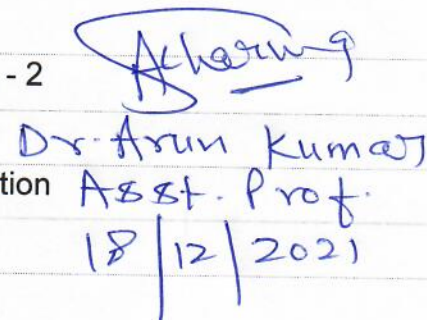 - 2
Dr. Arun Kumar
tion Asst. Prof.
18/12/2021